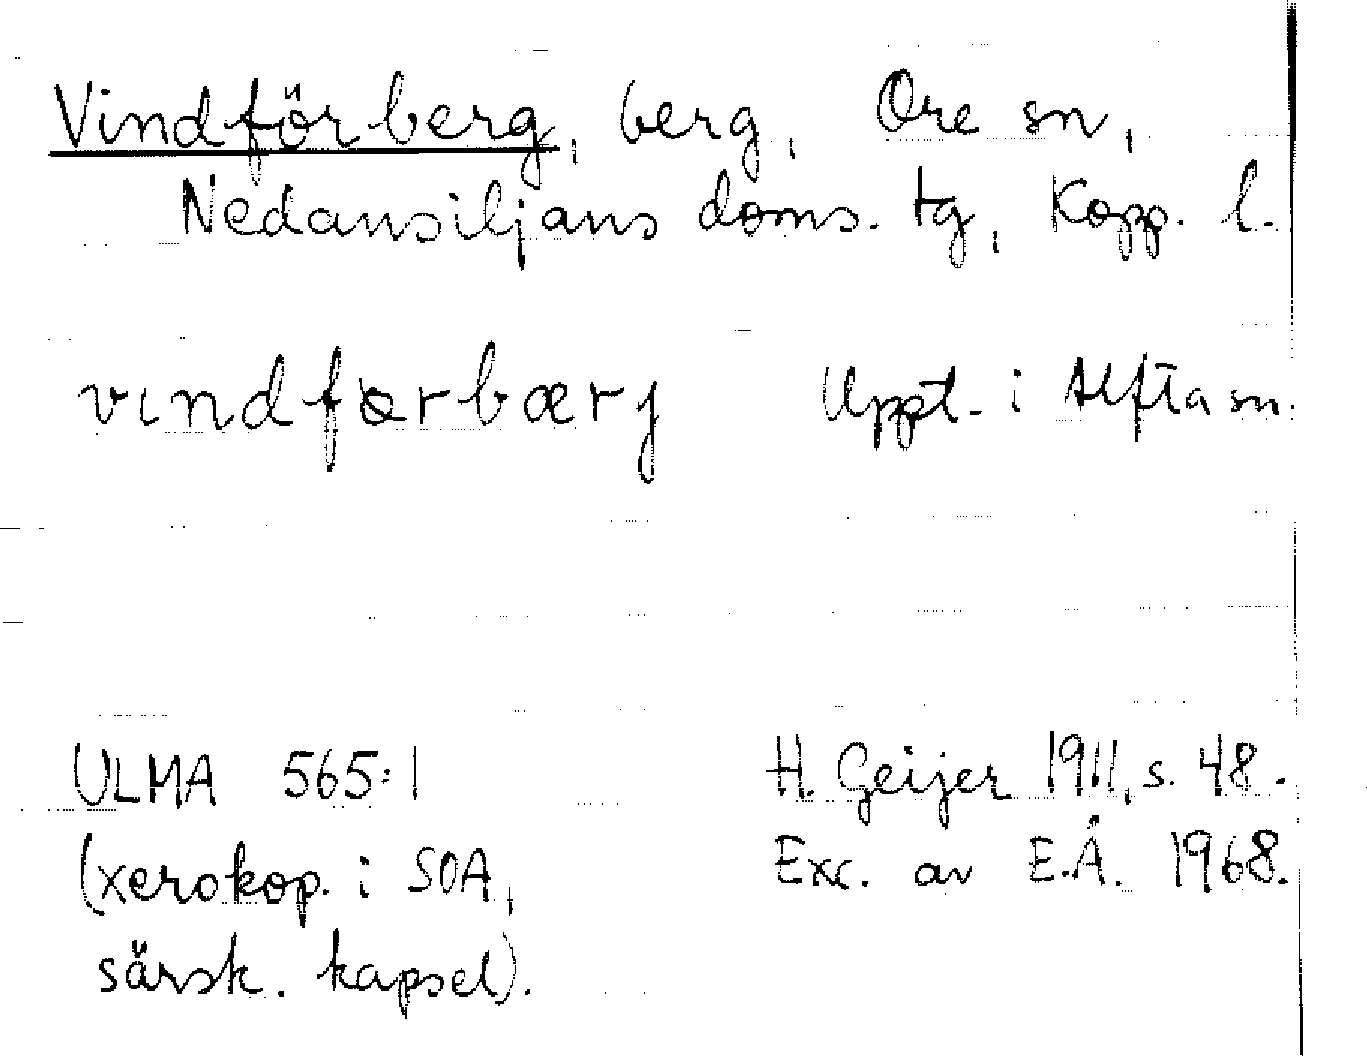 Vindförberg, berg, Ore sn,
Nedansiljans doms. tg, Kopp. l.
vındfœrbærj Uppt. i Alfta sn.
ULMA 565:1 H. Geijer 1911, s. 48.
(xerokop. i SOA, Exc. av E.Å. 1968.
särsk. kapsel).